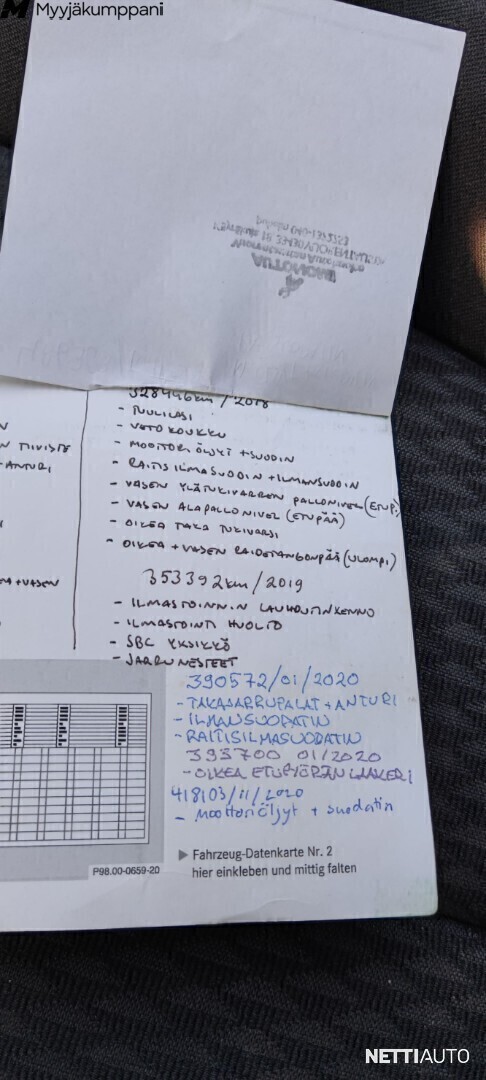 Myyjäkumppani
AUTONOMI
328446km / 2018
- TUULILASI
- VETO KOUKKU
- MOOTTORI ÖLJYT + SUODIN
- RAITIS ILMASUODIN + ILMANSUODIN
- VASEN YLÄTUKIVARREN PALLONIVEL (ETUP.)
- VASEN ALAPALLONIVEL (ETUPÄÄ)
- OIKEA TAKA TUKIVARSI
- OIKEA + VASEN RAIDETANGONPÄÄ (ULOMPI)
N TIIVISTE
+ANTURI
+VASEN
353392km / 2019
- ILMASTOINNIN LAUHDUTINKENNO
- ILMASTOINTI HUOLTO
- SBC YKSIKKÖ
- JARRUNESTEET
390572/01/2020
- TAKAJARRUPALAT + ANTURI
- ILMANSUODATIN
- RAITISILMASUODATIN
393700 01/2020
- OIKEA ETUPYÖRÄN LAAKERI
418103/11/2020
- Moottoriöljyt + suodatin
P98.00-0659-20
Fahrzeug-Datenkarte Nr. 2
hier einkleben und mittig falten
NETTIAUTO